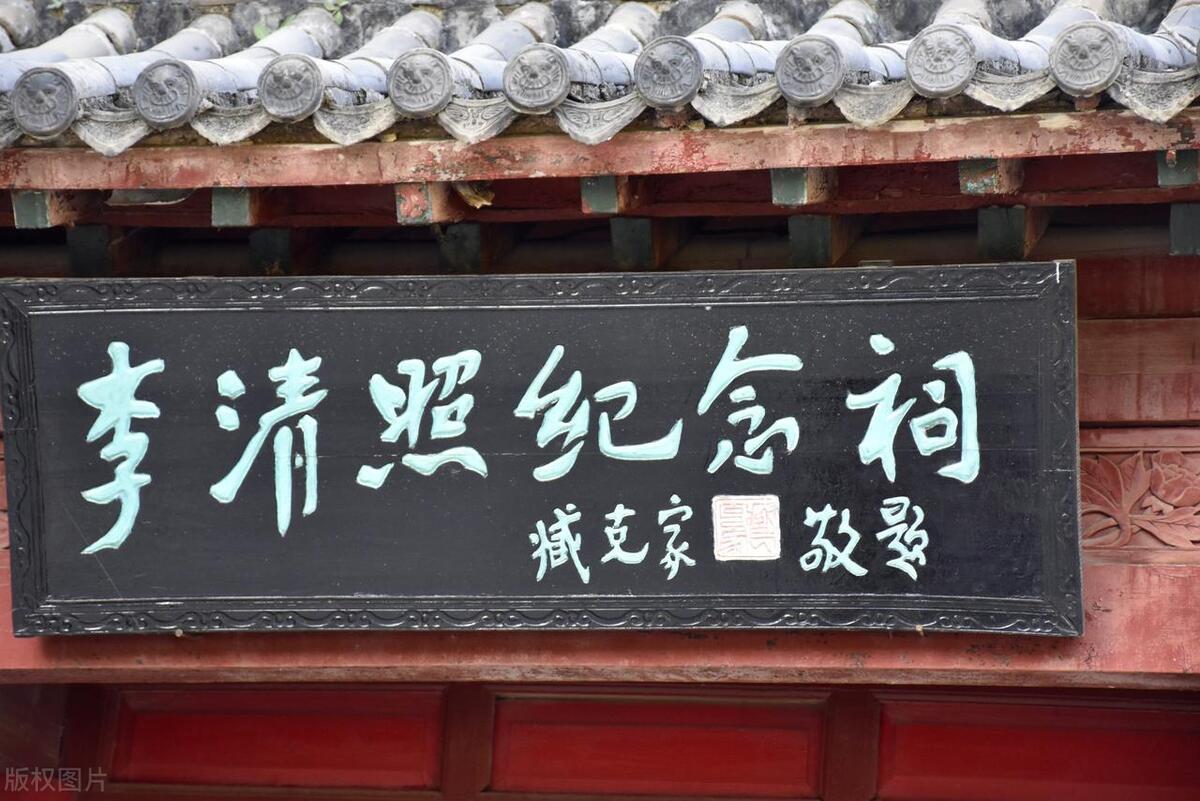 李清照纪念祠
臧克家 敬题
版权图片